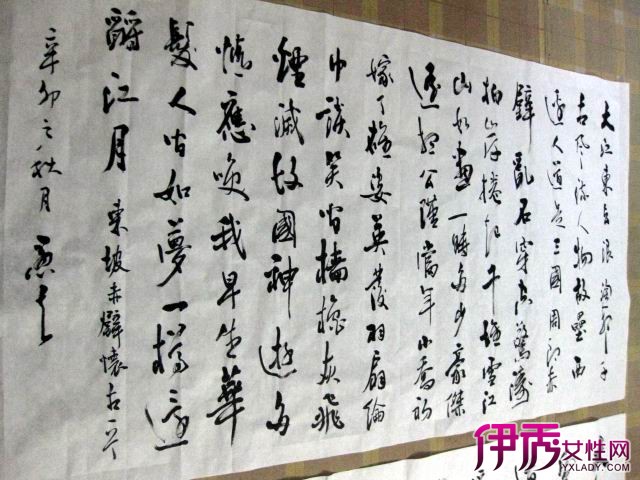 大江東去浪淘盡千
古風流人物故壘西
邊人道是三國周郎赤
壁亂石穿空驚濤
拍岸捲起千堆雪江
山如畫一時多少豪傑
遙想公瑾當年小喬初
嫁了雄姿英發羽扇綸
巾談笑間檣櫓灰飛
煙滅故國神遊多
情應喚我早生華
髮人間如夢一樽還
酹江月 東坡赤壁懷古
辛卯之秋月
伊秀女性网
YXLADY.COM